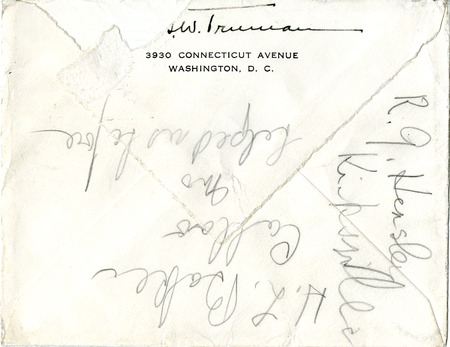 .W. Truman
3930 CONNECTICUT AVENUE
WASHINGTON, D. C.
R. J. Hensley
Kirksville
H. L. Baker
Mo
helped before